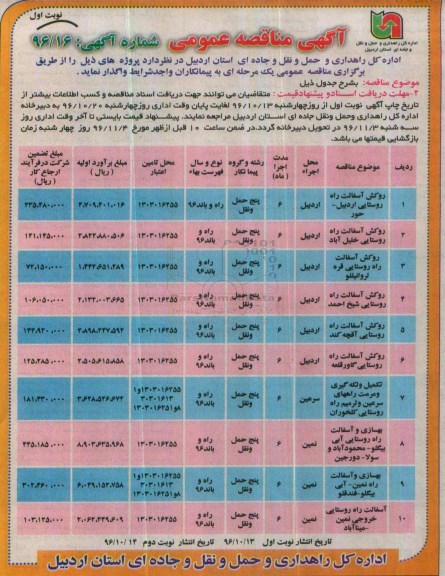 نوبت اول
آگهی مناقصه عمومی شماره آگهی: ۹۶/۱۶
اداره کل راهداری و حمل و نقل
و جاده ای استان اردبیل
اداره کل راهداری و حمل و نقل و جاده ای استان اردبیل در نظردارد پروژه های ذیل را از طریق
برگزاری مناقصه عمومی یک مرحله ای به پیمانکاران واجدشرایط واگذار نماید .
موضوع مناقصه: بشرح جدول ذیل
۲-مهلت دریافت اسنادو پیشنهادقیمت: متقاضیان می توانند جهت دریافت اسناد مناقصه و کسب اطلاعات بیشتر از
تاریخ چاپ آگهی نوبت اول از روزچهارشنبه ۹۶/۱۰/۱۳ لغایت پایان وقت اداری روزچهارشنبه ۹۶/۱۰/۲۰ به دبیرخانه
اداره کل راهداری وحمل ونقل جاده ای استان اردبیل مراجعه نمایند. پیشنهاد قیمت بایستی تا آخر وقت اداری روز
سه شنبه ۹۶/۱۱/۳ در تحویل دبیرخانه گردد.در ضمن ساعت ۱۰ قبل ازظهر مورخ ۹۶/۱۱/۴ روز چهار شنبه زمان
بازگشایی قیمتها می باشد.
ردیف موضوع مناقصه محل اجراء مدت اجرا (ماه) رشته و گروه پیما نکار نوع و سال فهرست بهاء محل تامین اعتبار مبلغ برآورد اولیه (ریال) مبلغ تضمین شرکت درفرآیند ارجاع کار (ریال)
۱ روکش آسفالت راه روستایی اردبیل- حور اردبیل ۶ پنج حمل ونقل راه و باند۹۶ ۱۳۰۳۰۱۶۲۵۵ ۴،۷۰۹،۴۰۱،۰۱۶ ۲۳۵،۴۸۰،۰۰۰
۲ روکش آسفالت راه روستایی خلیل آباد اردبیل ۶ پنج حمل ونقل راه و باند۹۶ ۱۳۰۳۰۱۶۲۵۵ ۲،۸۲۲،۸۸۰،۵۰۶ ۱۴۱،۱۴۵،۰۰۰
۳ روکش آسفالت راه روستایی قره لروانیللو اردبیل ۶ پنج حمل ونقل راه و باند۹۶ ۱۳۰۳۰۱۶۲۵۵ ۱،۴۴۲،۶۵۱،۲۸۹ ۷۲،۱۵۰،۰۰۰
۴ روکش آسفالت راه روستایی شیخ احمد اردبیل ۶ پنج حمل ونقل راه و باند۹۶ ۱۳۰۳۰۱۶۲۵۵ ۲،۱۲۲،۰۰۳،۶۶۵ ۱۰۶،۰۵۰،۰۰۰
۵ روکش آسفالت راه روستایی آقچه کند اردبیل ۶ پنج حمل ونقل راه و باند۹۶ ۱۳۰۳۰۱۶۲۵۵ ۲،۸۹۸،۲۴۷،۵۹۲ ۱۴۴،۹۲۰،۰۰۰
۶ روکش آسفالت راه روستایی گاورقلعه اردبیل ۶ پنج حمل ونقل راه و باند۹۶ ۱۳۰۳۰۱۶۲۵۵ ۲،۵۰۵،۶۱۵،۸۵۸ ۱۲۵،۲۸۵،۰۰۰
۷ تکمیل ولکه گیری ومرمت راههای سرعین وترمیم راه روستایی کلخوران سرعین ۶ پنج حمل ونقل راه و باند۹۶ ۳،۶۲۸،۵۲۶،۶۷۴ ۱۸۱،۴۳۰،۰۰۰
۸ بهسازی و آسفالت راه روستایی آبی بیگلو- محمودآباد و سولا- دورجین نمین ۶ پنج حمل ونقل راه و باند۹۶ ۱۳۰۳۰۱۶۲۵۵ ۸،۹۰۳،۶۳۵،۹۶۸ ۴۴۵،۱۸۵،۰۰۰
۹ بهسازی وآسفالت راه نمین- آبی بیگلو-فندقلو نمین ۶ پنج حمل ونقل راه و باند۹۶ ۶،۰۴۹،۱۵۲،۷۵۸ ۳۰۲،۴۶۰،۰۰۰
۱۰ آسفالت راه روستایی خروجی نمین -میناآباد نمین ۶ پنج حمل ونقل راه و باند۹۶ ۱۳۰۳۰۱۶۲۵۵ ۲،۰۶۲،۴۴۹،۶۰۹ ۱۰۳،۱۲۵،۰۰۰
تاریخ انتشار نوبت اول ۹۶/۱۰/۱۳ تاریخ انتشار نوبت دوم ۹۶/۱۰/۱۴
اداره کل راهداری و حمل و نقل و جاده ای استان اردبیل